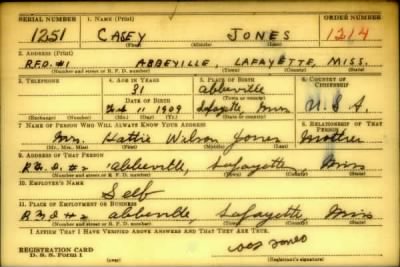 SERIAL NUMBER 1. NAME (Print) ORDER NUMBER
1251 CASEY JONES 1214
(First) (Middle) (Last)
2. ADDRESS (Print)
R.F.D. #1 ABBEVILLE, LAFAYETTE, MISS.
(Number and street or R. F. D. number) (Town) (County) (State)
3. TELEPHONE 4. AGE IN YEARS 5. PLACE OF BIRTH 6. COUNTRY OF CITIZENSHIP
31 abbeville
DATE OF BIRTH (Town or county)
Feb 11 1909 Lafayette, Miss U.S.A.
(Exchange) (Number) (Mo.) (Day) (Yr.) (State or country)
7. NAME OF PERSON WHO WILL ALWAYS KNOW YOUR ADDRESS 8. RELATIONSHIP OF THAT PERSON
Mrs. Hattie Wilson Jones Mother
(Mr., Mrs., Miss) (First) (Middle) (Last)
9. ADDRESS OF THAT PERSON
#2 abbeville, Lafayette, Miss
(Number and street or R. F. D. number) (Town) (County) (State)
10. EMPLOYER'S NAME
Self
11. PLACE OF EMPLOYMENT OR BUSINESS
#2 abbeville, Lafayette, Miss
(Number and street or R. F. D. number) (Town) (County) (State)
I AFFIRM THAT I HAVE VERIFIED ABOVE ANSWERS AND THAT THEY ARE TRUE.
REGISTRATION CARD
D. S. S. Form 1 (over) (Registrant's signature)